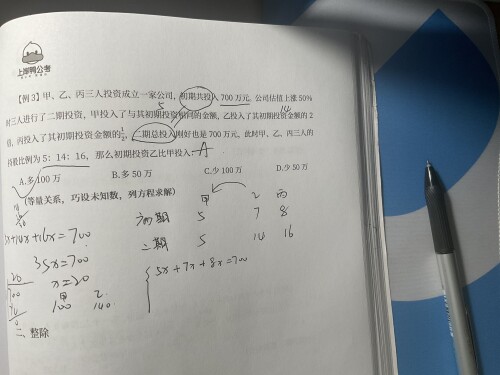 上岸鸭公考
【例 3】甲、乙、丙三人投资成立一家公司，初期共投入 700 万元。公司估值上涨 50%
时三人进行了二期投资，甲投入了与其初期投资相同的金额，乙投入了其初期投资金额的 2
倍，丙投入了其初期投资金额的1/2，二期总投入刚好也是 700 万元，此时甲、乙、丙三人的
持股比例为 5：14：16，那么初期投资乙比甲投入 A
A.多 100 万 B.多 50 万 C.少 100 万 D.少 50 万
（等量关系，巧设未知数，列方程求解）
甲 乙 丙
初期 5 7 8
5x+14x+16x=700
二期 5 14 16
35x=700
5x+7x+8x=700
x=20
甲 乙
100 140
二、整除